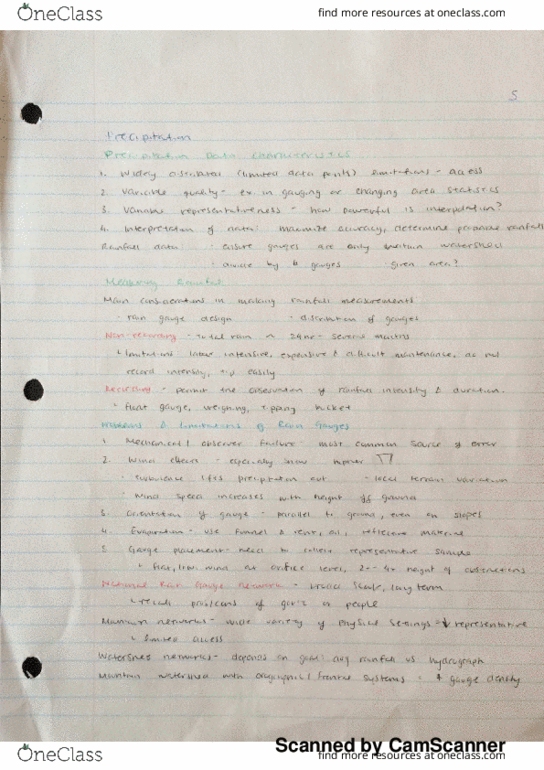 OneClass
find more resources at oneclass.com
5
Precipitation
Precipitation Data Characteristics
1. Widely distributed (limited data points) limitations - access
2. Variable quality - ex. in gauging or changing area statistics
3. Variable representativeness - how powerful is interpolation?
4. Interpretation of data: maximize accuracy, determine rainfall
Rainfall data · ensure gauges are only within watershed
· divide by # gauges given area?
Measuring Rainfall
Main considerations in making rainfall measurements
· rain gauge design · distribution of gauges
Non-recording - total rain in 24hr - several months
limitations labour intensive, expensive & difficult maintenance, do not
record intensity, tip easily
Recording - permit the observation of rainfall intensity & duration.
float gauge, weighing, tipping bucket
Problems & Limitations of Rain Gauges
1. Mechanical / observer failure - most common source of error
2. Wind effects - especially snow
· turbulence lifts precipitation out · local terrain variation
· wind speed increases with height off ground
3. Orientation of gauge - parallel to ground, even on slopes
4. Evaporation - use funnel & vent, oil, reflective material
5. Gauge placement - need to collect representative sample
flat, low wind at orifice level, 2-4x height of obstructions
National Rain Gauge Network - broad scale, long term
results of gov's or people
Mountain networks - wide variety of physical settings - representative
limited access
Watershed networks - depends on goal: avg rainfall vs hydrograph
Mountain watershed with orographic / frontal systems - gauge density
OneClass
find more resources at oneclass.com
Scanned by CamScanner